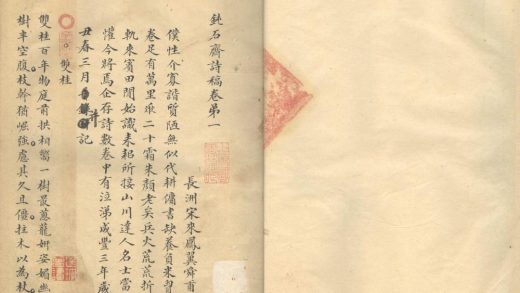 鈍石齋詩稿卷弟一
長洲宋來鳳翼舜甫
僕性介寡諧質陋無似代耕傭書缺養負米習
卷足有萬里二十霜朱顏老矣兵火荒荒折
軌來賓田間始識耒耜所接山川達人名士當
懼今將焉企存詩數卷中有泣涕咸豐三年歲
丑春三月并記
雙桂
雙桂百年物庭前拱相嚮一樹最蔥蘢妍姿媚幽
樹半空腹枝幹猶崛強慮其久且僵拄木以為杖